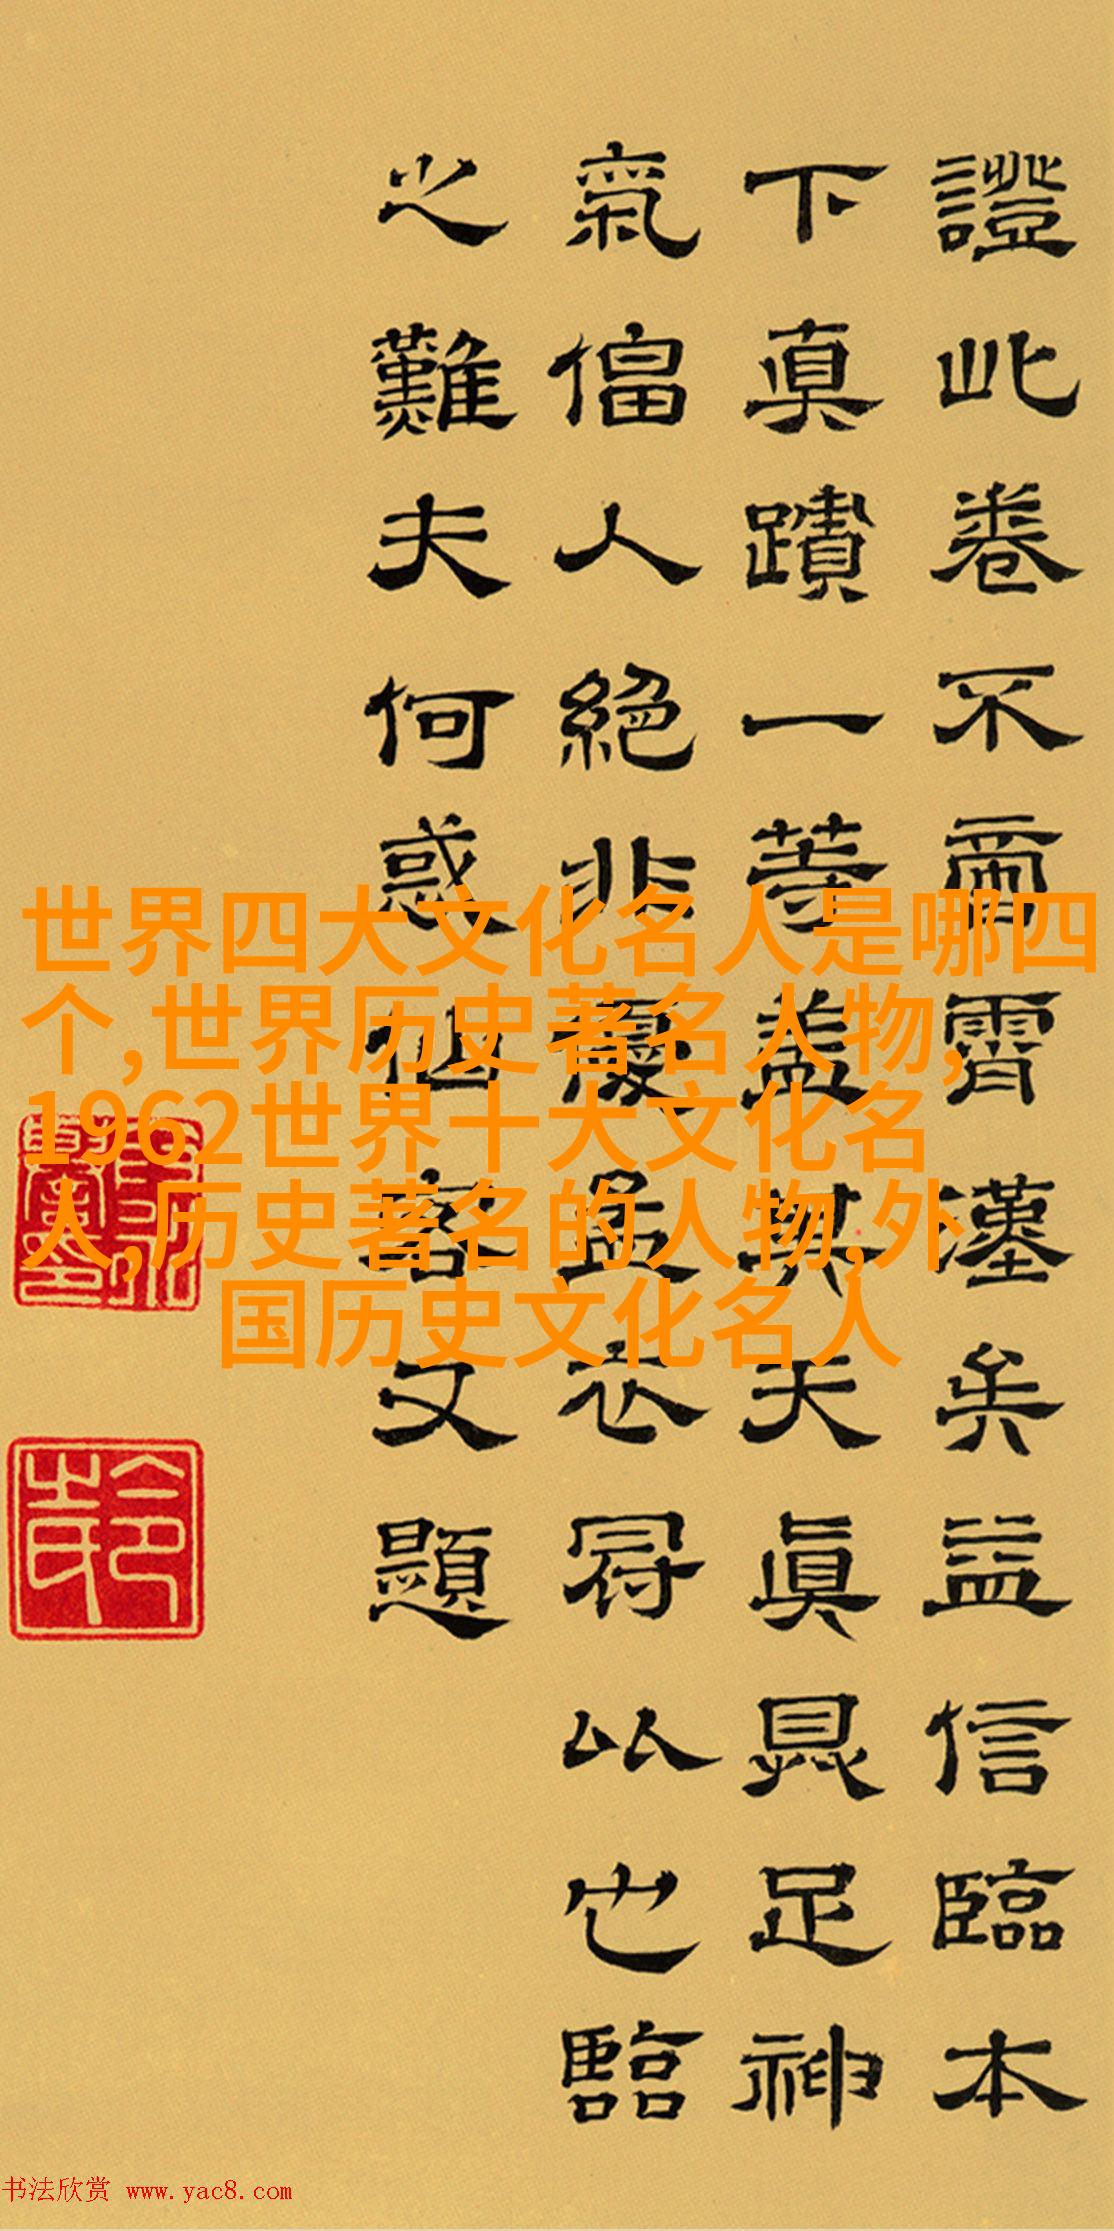 證此卷不啻霄漢矣益信臨本
下真蹟一等蓋其天真具足神
氣偪人絕非優孟衣冠以也臨
之難夫何惑
又題
世界四大文化名人是哪四
个,世界历史著名人物,
1962世界十大文化名
人,历史著名的人物,外
国历史文化名人
书法欣赏 www.yac8.com